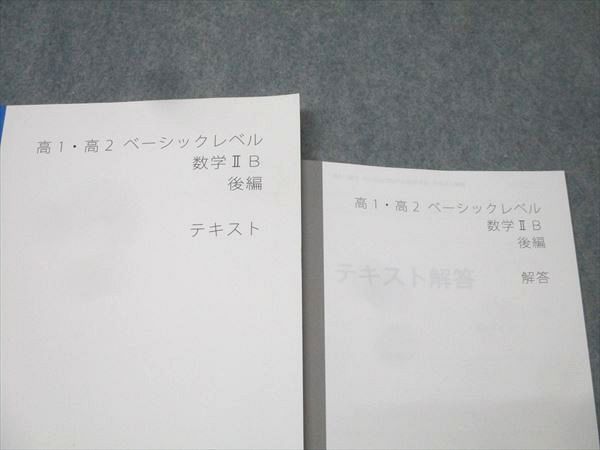 高1・高2 ベーシックレベル
数学ⅡB
後編
テキスト
高1・高2 ベーシックレベル
数学ⅡB
後編
解答
テキスト解答